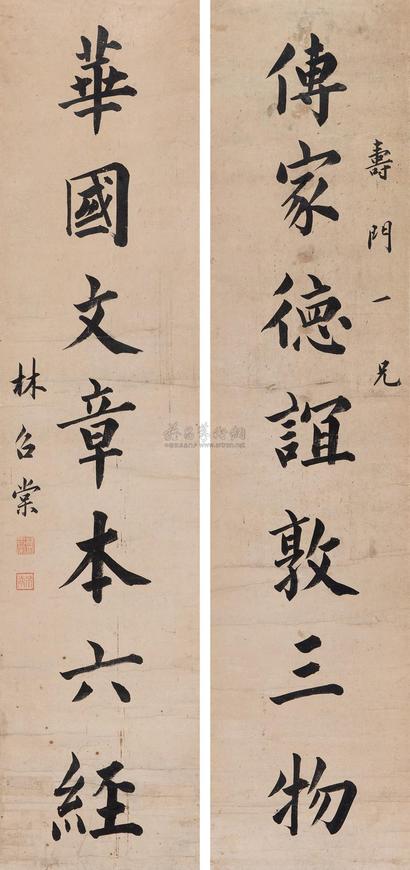 壽門一兄
傳家德誼敦三物
華國文章本六經
林召棠